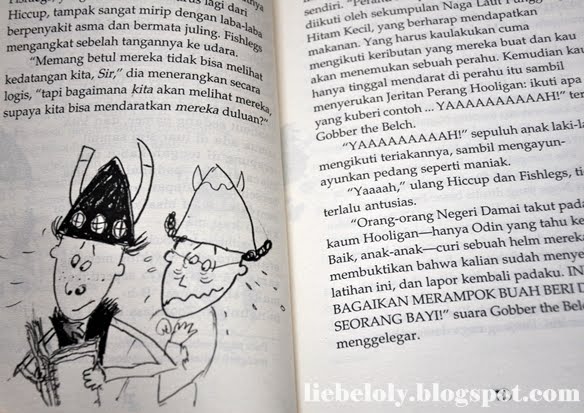 harus lagi dari
Hiccup, tampak sangat mirip dengan laba-laba
berpenyakit asma dan bermata juling. Fishlegs
mengangkat sebelah tangannya ke udara.
"Memang betul mereka tidak bisa melihat
kedatangan kita, Sir," dia menerangkan secara
logis, "tapi bagaimana kita akan melihat mereka,
supaya kita bisa mendaratkan mereka duluan?"
sendiri.
diikuti oleh sekumpulan Naga Laut
Hitam Kecil, yang berharap mendapatkan
makanan. Yang harus kaulakukan cuma
mengikuti keributan yang mereka buat dan kau
akan menemukan sebuah perahu. Kemudian kau
hanya tinggal mendarat di perahu itu sambil
menyerukan Jeritan Perang Hooligan: ikuti apa
yang kuberi contoh ... YAAAAAAAAAH!" ter
Gobber the Belch.
"YAAAAAAAAAH!" sepuluh anak laki-la
mengikuti teriakannya, sambil mengayun-
ayunkan pedang seperti maniak.
"Yaaaah," ulang Hiccup dan Fishlegs, ti
terlalu antusias.
"Orang-orang Negeri Damai takut pada
kaum Hooligan—hanya Odin yang tahu ke
Baik, anak-anak—curi sebuah helm mereka
membuktikan bahwa kalian sudah menye
latihan ini, dan lapor kembali padaku. IN
BAGAIKAN MERAMPOK BUAH BERI D
SEORANG BAYI!" suara Gobber the Belch
menggelegar.
liebeloly.blogspot.com